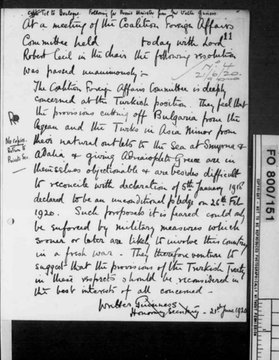 At a meeting of the Coalition Foreign Affairs
11
Committee held today with Lord
Robert Cecil in the chair the following resolution
was passed unanimously:-
21/6/20.
The Coalition Foreign Affairs Committee is deeply
concerned at the Turkish position. They feel that
the provisions cutting off Bulgaria from the
Aegean and the Turks in Asia Minor from
their natural outlets to the Sea at Smyrna &
Adalia & giving Adrianople to Greece are in
themselves objectionable & are besides difficult
to reconcile with declaration of 5th January 1918
declared to be an unconditional pledge on 26th Feb
1920. Such proposals it is feared could only
be enforced by military measures which
sooner or later are likely to involve this country
in a fresh war. They therefore venture to
suggest that the provisions of the Turkish Treaty
in these respects should be reconsidered in
the best interests of all concerned.
Walter Guinness
Honorary Secretary - 21st June 1920
No copies
FO 800/151